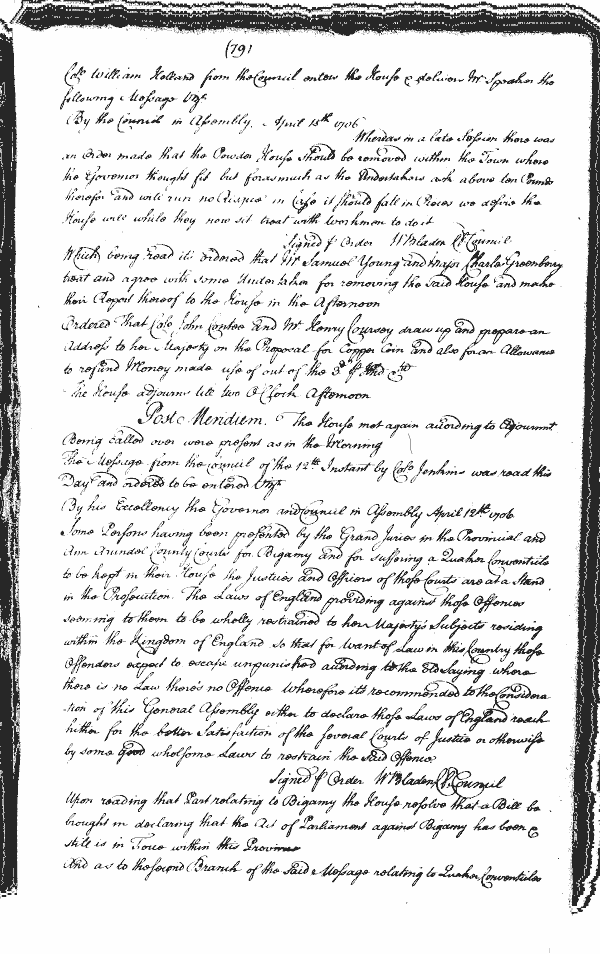 (79)
Colo William Holland from the Council enters the House & delivers Mr Speaker the
following Message Vizt
By the Council in Assembly, April 15th 1706
Whereas in a late Session there was
an Order made that the Powder House should be removed within the Town where
the Governor thought fit but forasmuch as the Undertakers ask above ten Pounds
therefor and will run no Risque in Case it should fall in Pieces we desire the
House will while they now sit treat with Workmen to do it
Signed p Order W Bladen Cl Council
Which being read it's ordered that Mr Samuel Young and Major Charles Greenberry
treat and agree with some Undertaker for removing the said House and make
their Report thereof to the House in the Afternoon
Ordered That Colo John Contee and Mr Henry Coursey draw up and prepare an
Address to her Majesty on the Proposal for Copper Coin and also for an Allowance
to refund Money made use of out of the 3d p Hhd
The House adjourns till two O'Clock Afternoon
Post Meridiem. The House met again according to Adjournmt
Being called over were present as in the Morning
The Message from the Council of the 12th Instant by Colo Jenkins was read this
Day and ordered to be entered Vizt
By his Excellency the Governor and Council in Assembly April 12th 1706
Some Persons having been presented by the Grand Juries in the Provincial and
Ann Arundel County Courts for Bigamy and for suffering a Quaker Conventicle
to be kept in their House the Justices and Officers of those Courts are at a Stand
in the Prosecution. The Laws of England providing against those Offences
seeming to them to be wholly restrained to her Majesty's Subjects residing
within the Kingdom of England so that for Want of Law in this Country those
Offenders expect to escape unpunished according to the old Saying where
there is no Law there's no Offence Wherefore it's recommended to the Considera
tion of this General Assembly either to declare those Laws of England reach
hither for the better Satisfaction of the several Courts of Justice or otherwise
by some good wholsome Laws to restrain the said Offence
Signed p Order W Bladen Cl Council
Upon reading that Part relating to Bigamy the House resolve that a Bill be
brought in declaring that the Act of Parliament against Bigamy has been &
still is in Force within this Province
And as to the second Branch of the said Message relating to Quaker Conventicles